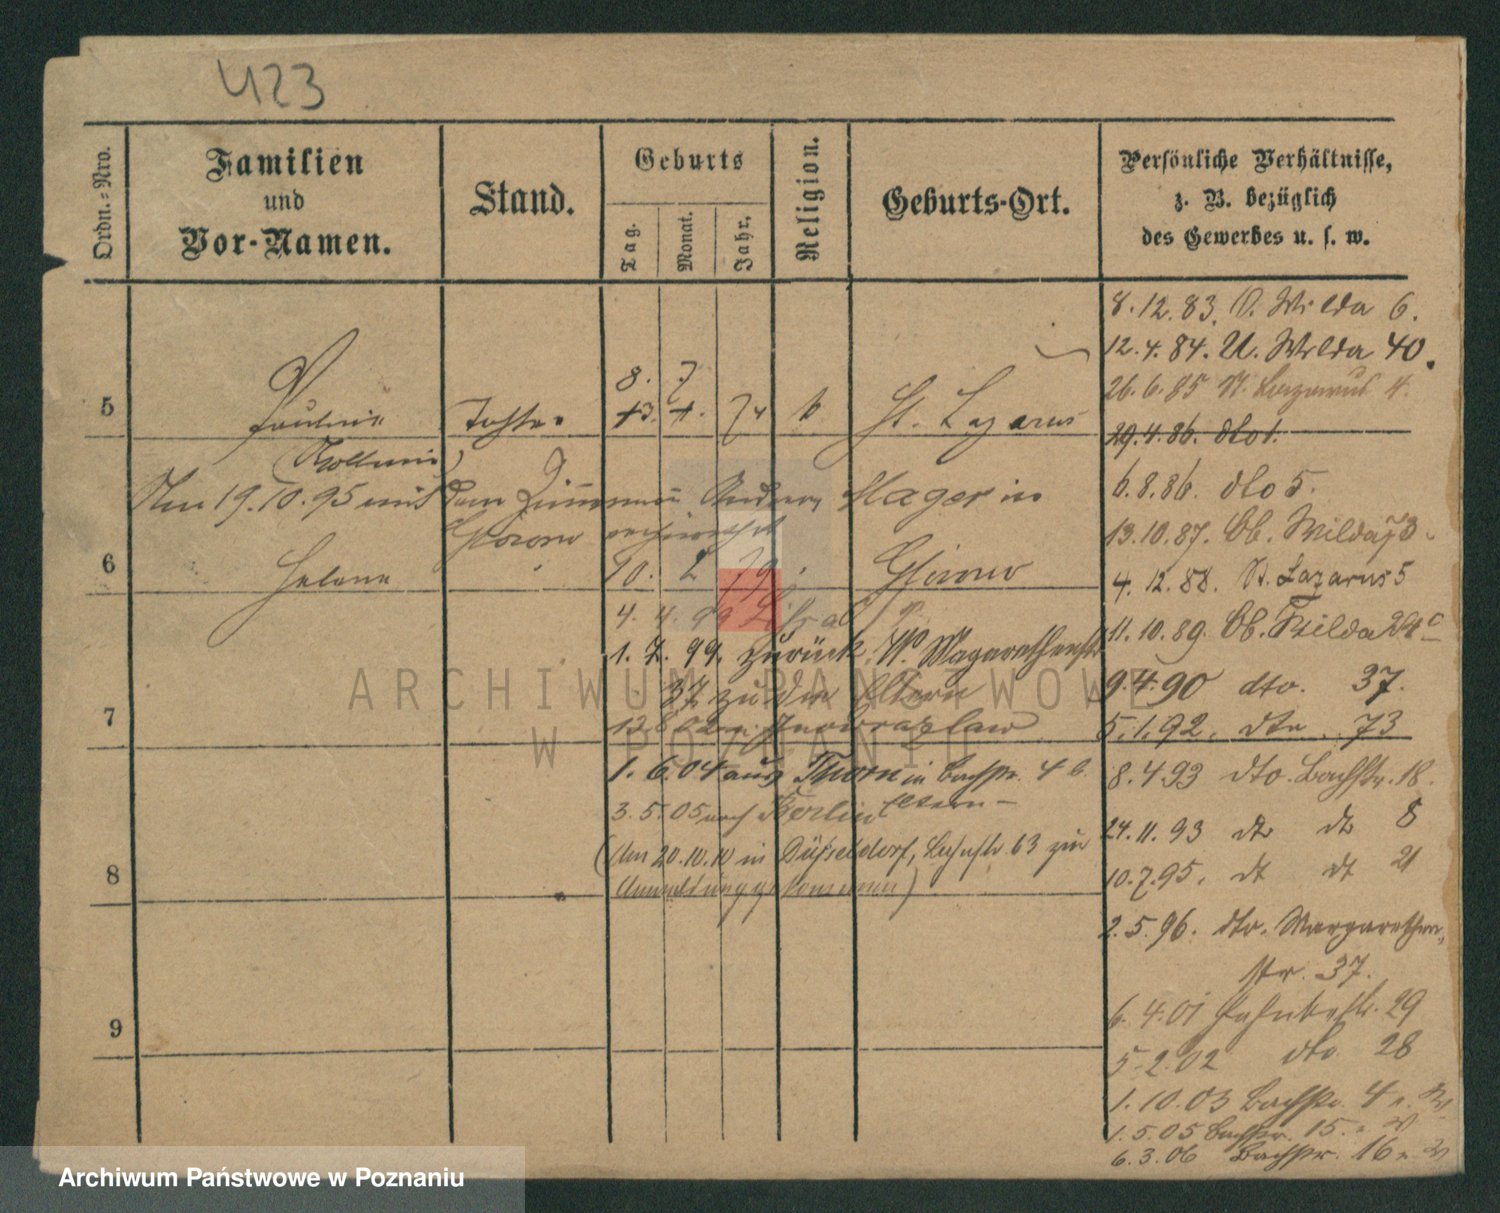 423
Ordn.-Nro.
Familien
und
Vor-Namen.
Stand.
Geburts
Tag.
Monat.
Jahr.
Religion.
Geburts-Ort.
Persönliche Verhältnisse,
z. B. bezüglich
des Gewerbes u. s. w.
5
8. 7
Pauline Tochter 13. 4. 74 k St. Lazarus
Am 19.10.95 mit dem Andreas Hager in
verheirathet
6
Helene 10. 2 79. Gurono
4. 4. 99
1. 7. 99. zurück, W. Margarethenstr
37 zu den Eltern
7
13.8.02 n. Inowrazlaw
1. 6. 04 aus Thorn in Bachstr. 4 b.
3. 5. 05 nach Berlin Eltern –
(Am 20.10.10 in Düsseldorf, 63 zur
8
Anmeldung gekommen)
9
8.12.83. O. Wilda 6.
12.4.84. U. Wilda 40.
26.6.85 St. Lazarus 4.
29.4.86. dto 1.
6.8.86. dto 5.
13.10.87. Ob. Wilda 73
4.12.88. St. Lazarus 5
11.10.89. Ob. Wilda 29c
9.4.90 dto. 37.
5.1.92. dto. 73
8.4.93 dto. Bachstr. 18.
24.11.93 dto dto 8
10.7.95. dt dt 21
2.5.96. dto. Margarethen-
str. 37.
6.4.01 29
5.2.02 dto 28
1.10.03 Bachstr. 4
1.5.05 Bachstr. 15.
6.3.06 Bachstr. 16
ARCHIWUM PAŃSTWOWE
W POZNANIU
Archiwum Państwowe w Poznaniu